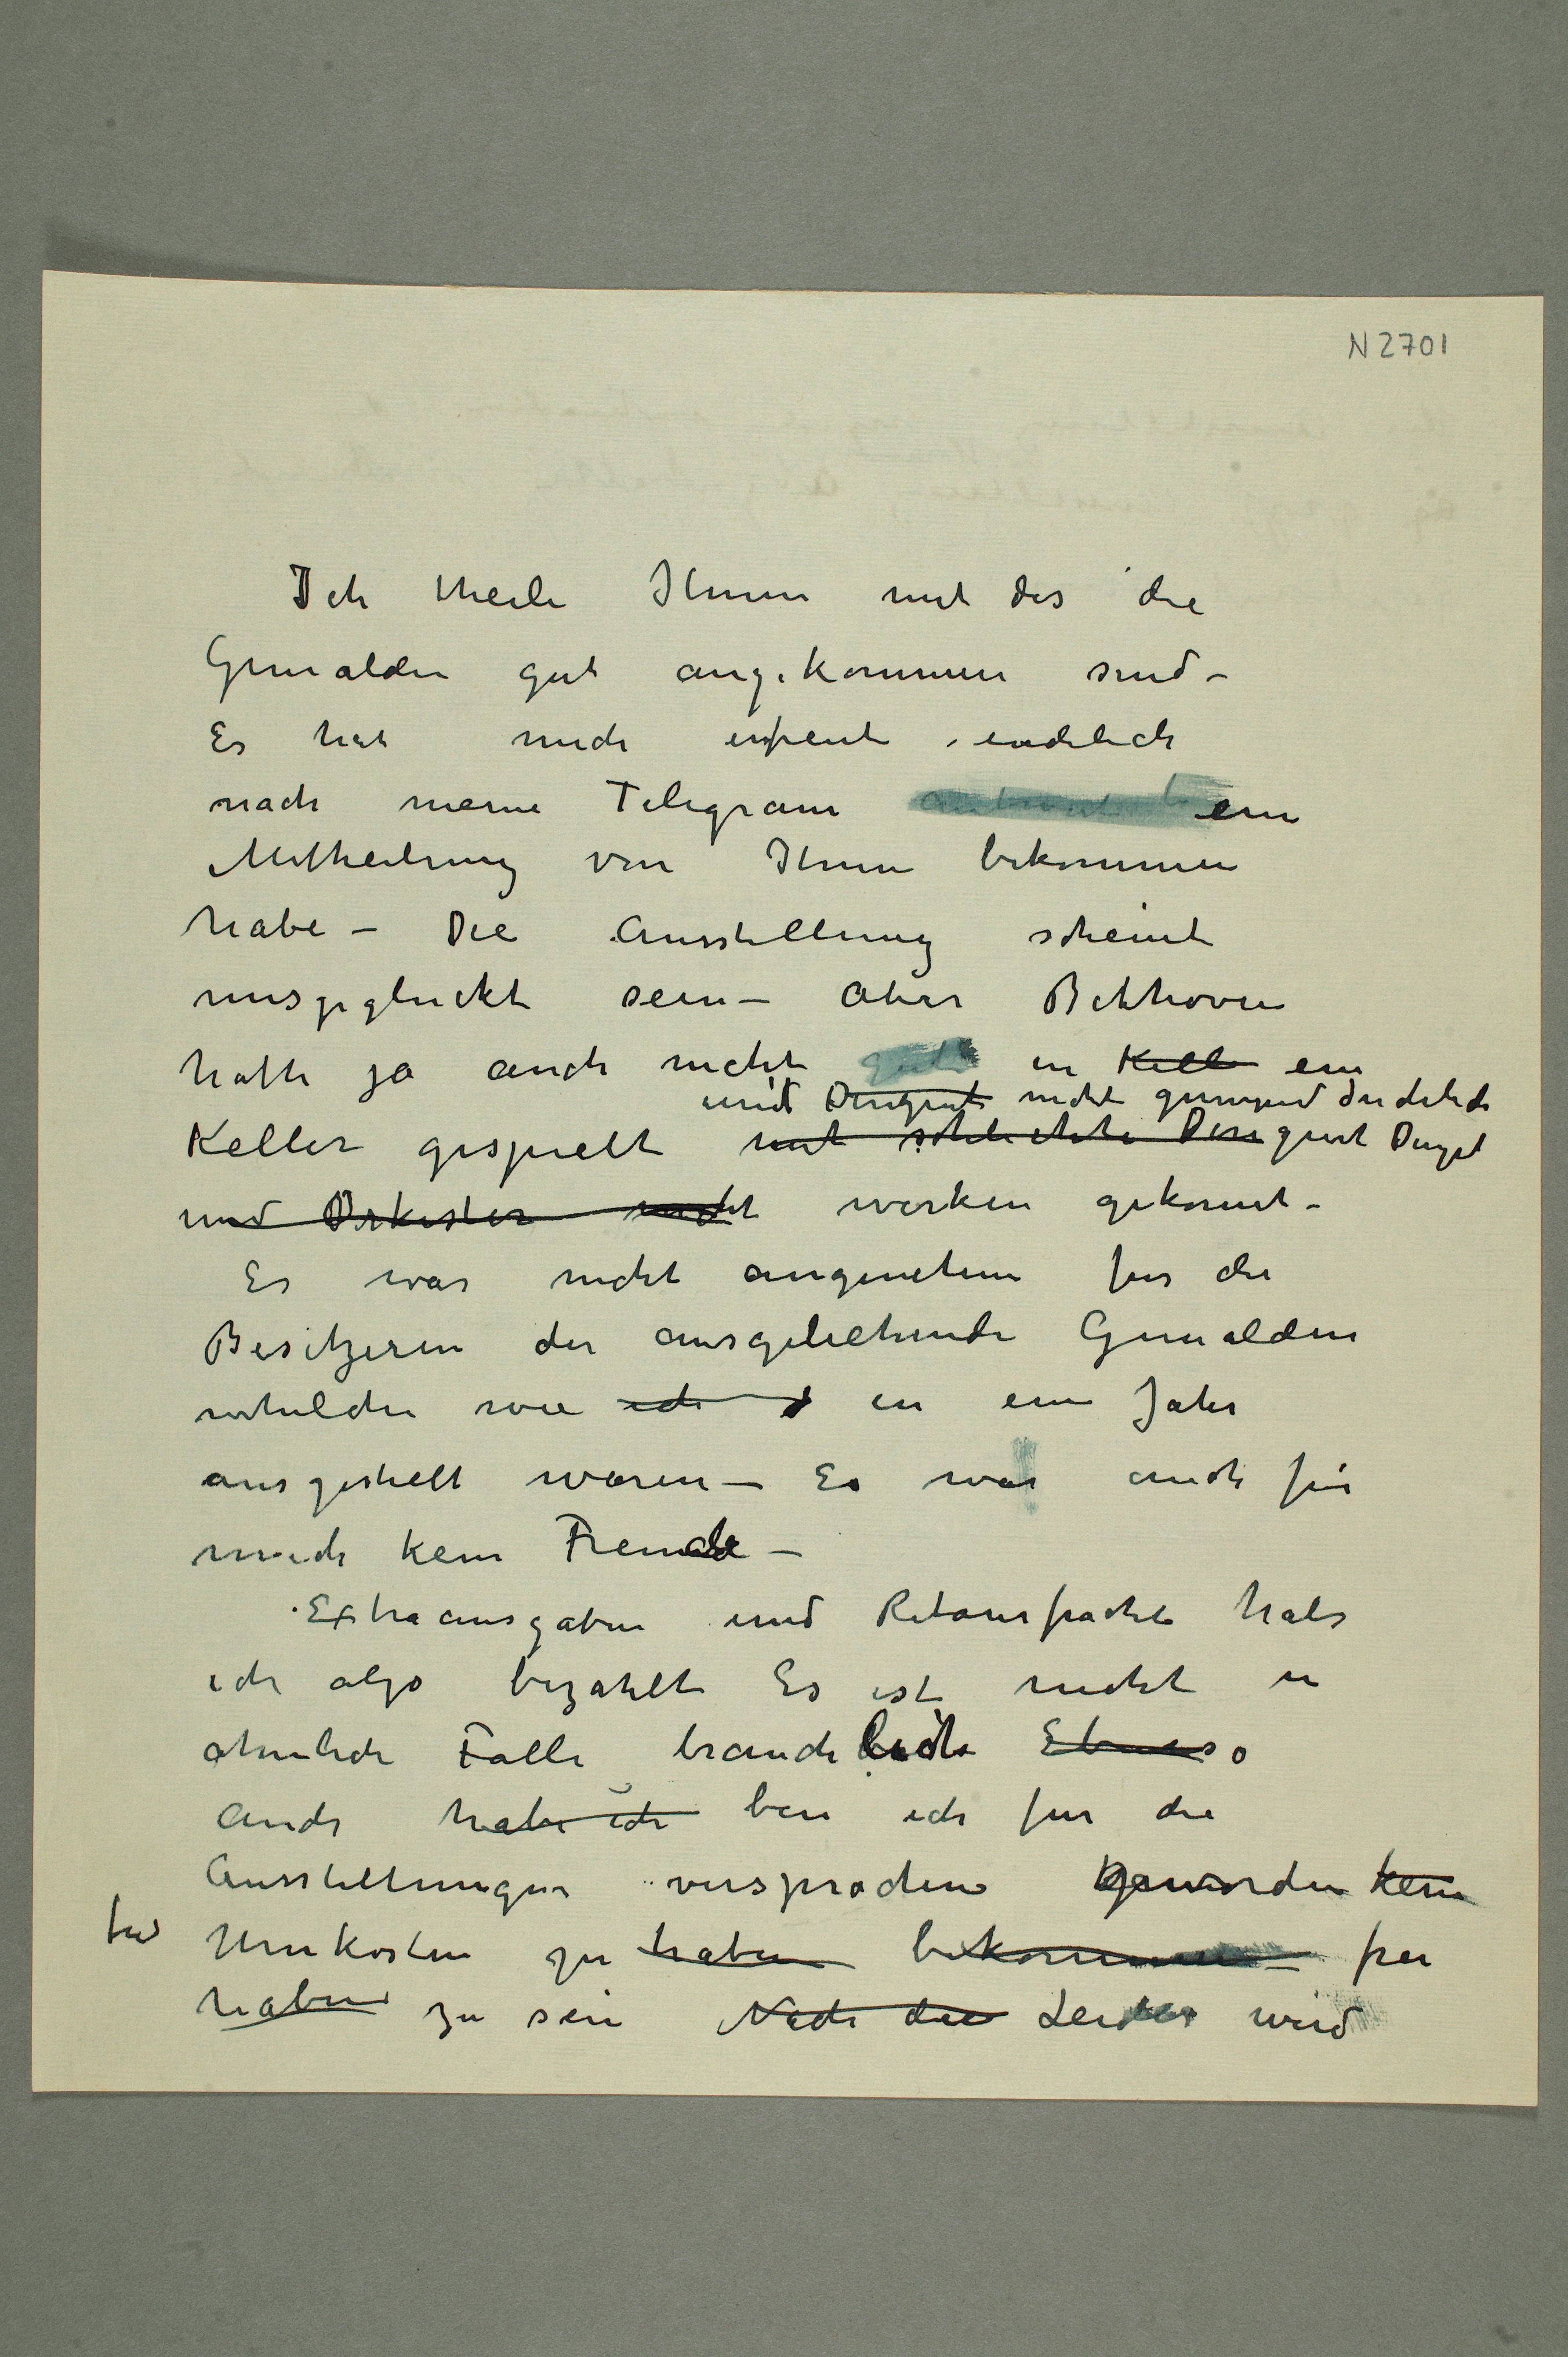 N 2701
Ich theile Ihnen mit das die
Gemalden gut angekommen sind –
Es hat mich erfreut endelich
nach meine Telegram ein
Mittheilung von Ihnen bekommen
habe – Die Ausstellung scheint
misgeglückt sein – aber Bethoven
hätte ja auch nicht gut in Kell ein
und Dirigent nicht genugend
Keller gespielt mit schlechte Dirigent
und Orkester nicht wirken gekonnt –
Es war nicht angenehm für die
Besitzeren der ausgeliehende Gemalden
welche wie ich in ein Jahr
ausgestellt waren – Es war auch für
mich kein Freude –
Extraausgaben und Retourfracht habe
ich also bezahlt Es ist nicht in
ähnliche Falle brauchlich Ebenso
Auch habe ich bin ich für die
Ausstellungen versprochen geworden kein
frei Unkosten zu haben bekommen frei
haben zu sein Nach die Leider wird